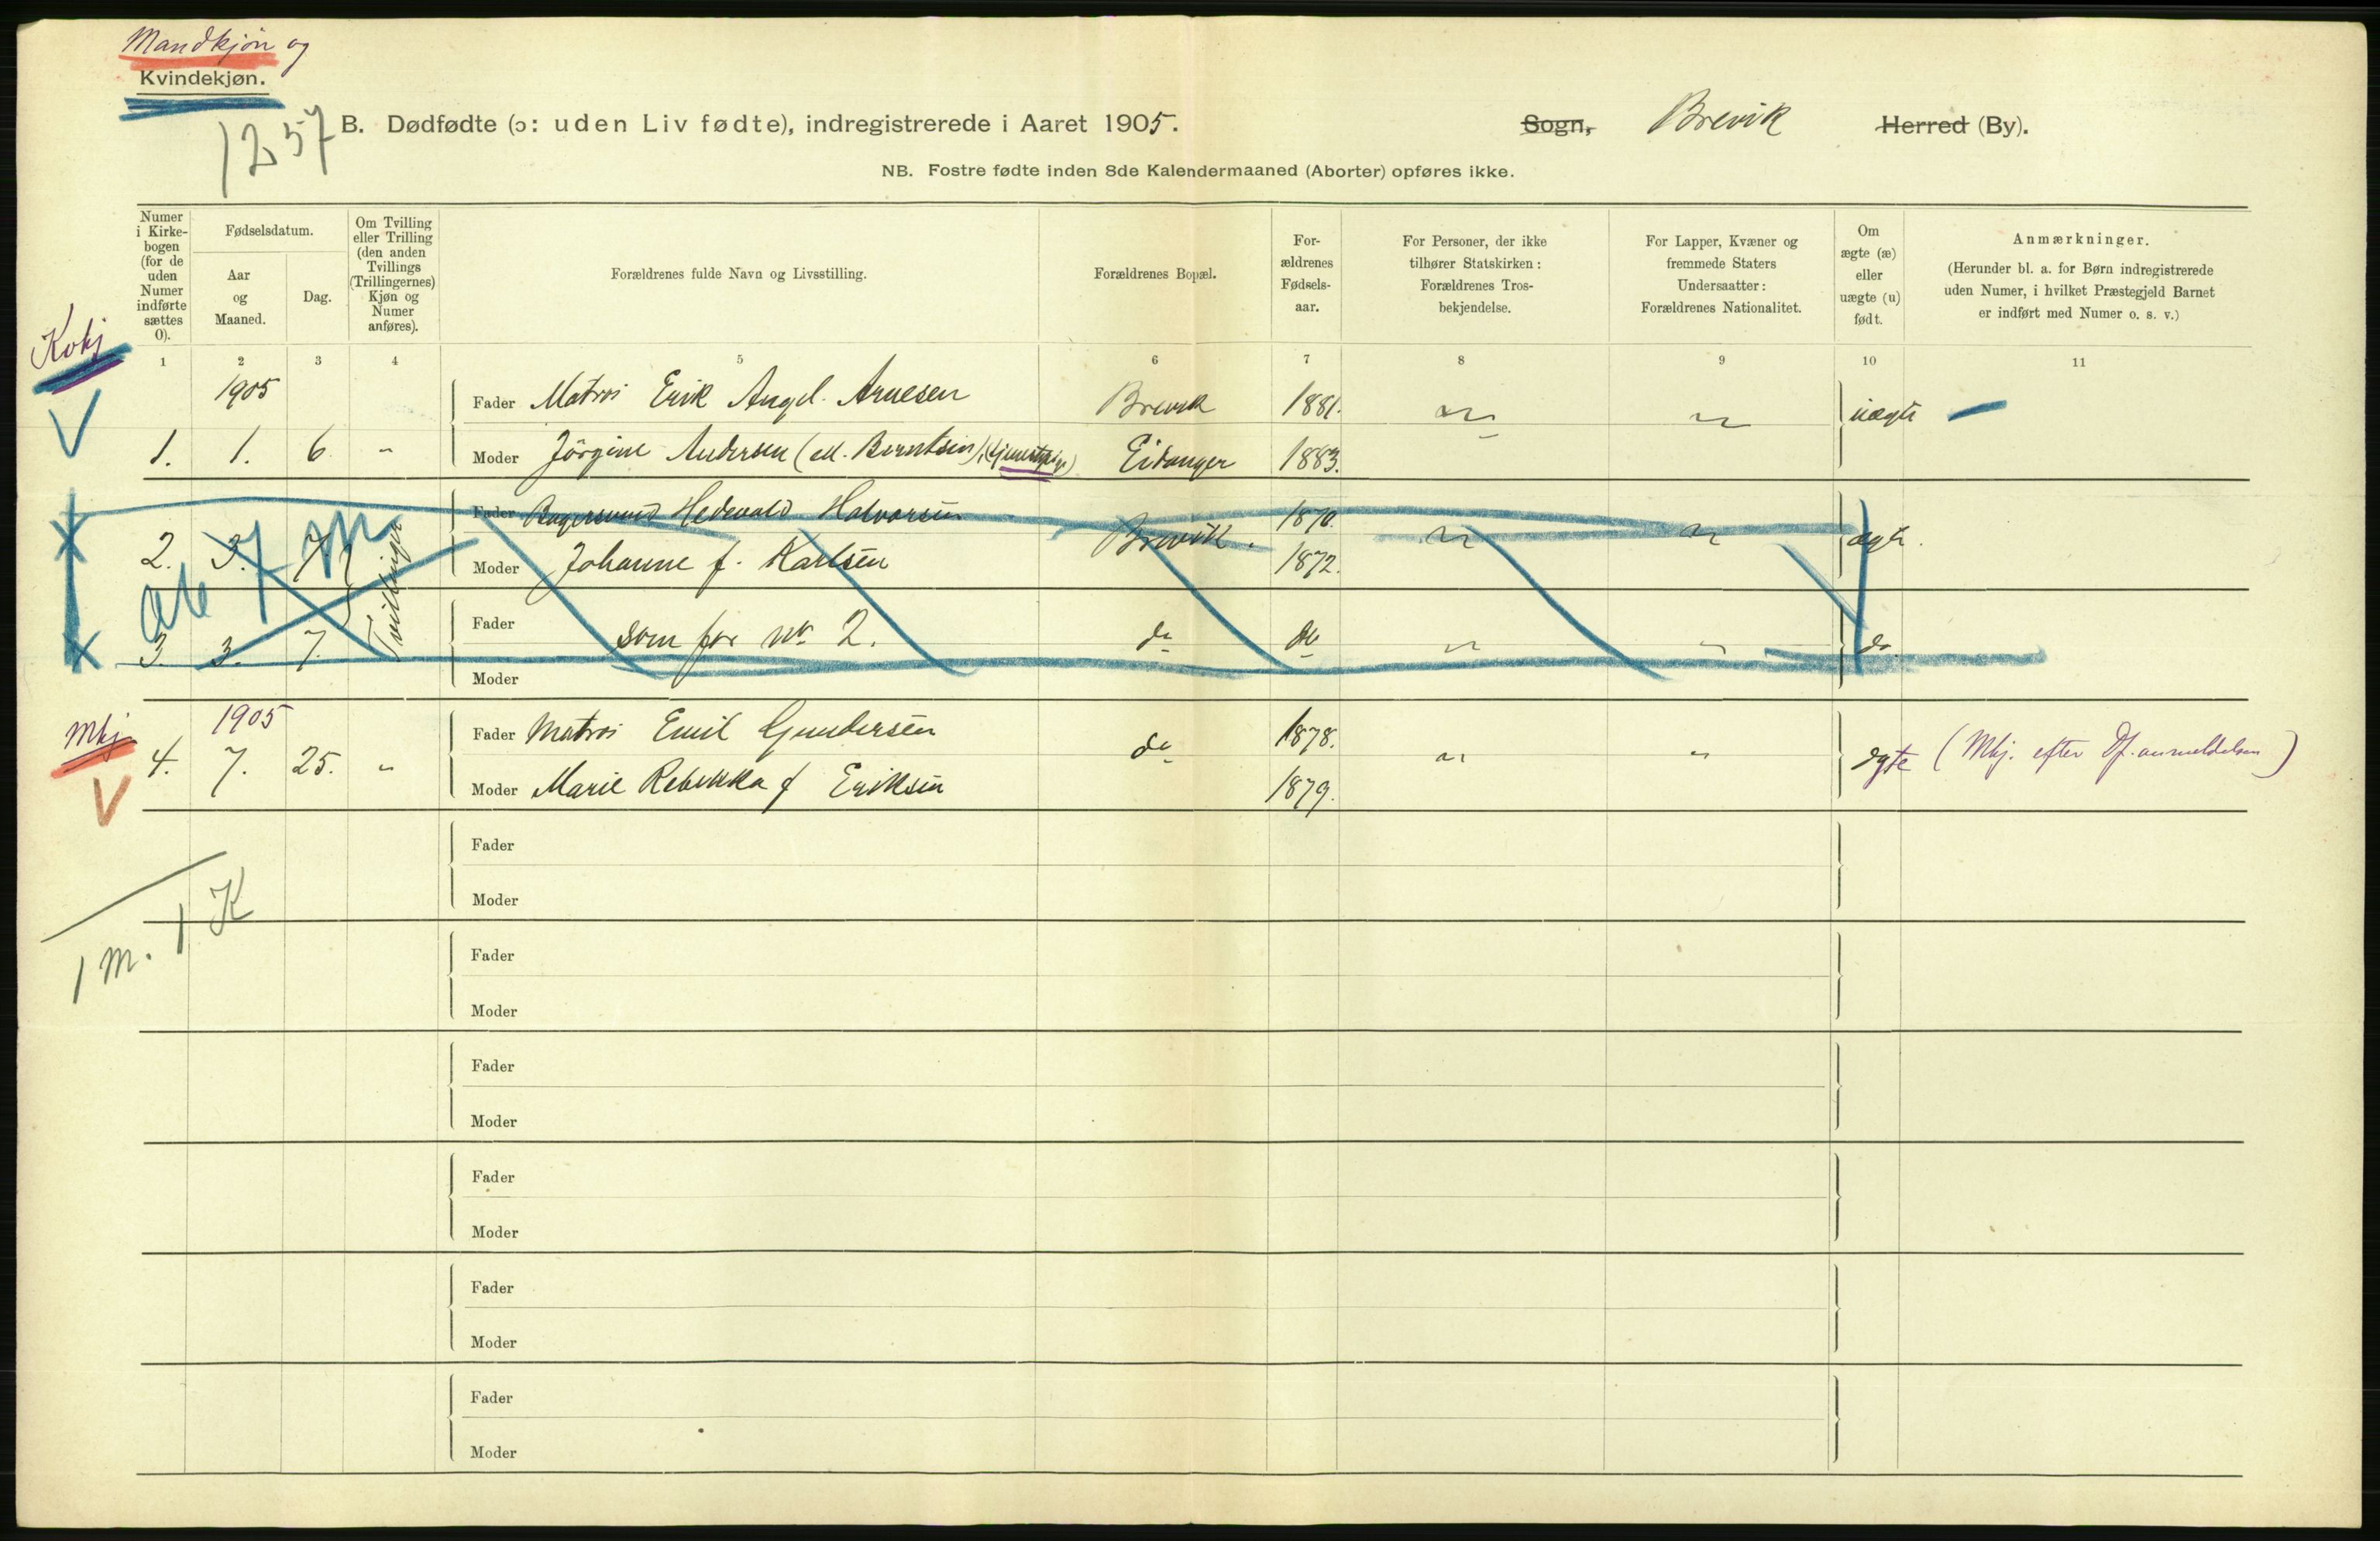 Mandkjøn og
Kvindekjøn.
1257
B. Dødfødte (ɔ: uden Liv fødte), indregistrerede i Aaret 1905.
Sogn, Brevik Herred (By).
NB. Fostre fødte inden 8de Kalendermaaned (Aborter) opføres ikke.
Numer i Kirkebogen (for de uden Numer indførte sættes 0).
Fødselsdatum.
Aar og Maaned.
Dag.
Om Tvilling eller Trilling (den anden Tvillings (Trillingernes) Kjøn og Numer anføres).
Forældrenes fulde Navn og Livsstilling.
Forældrenes Bopæl.
Forældrenes Fødselsaar.
For Personer, der ikke tilhører Statskirken: Forældrenes Trosbekjendelse.
For Lapper, Kvæner og fremmede Staters Undersaatter: Forældrenes Nationalitet.
Om ægte (æ) eller uægte (u) født.
Anmærkninger.
(Herunder bl. a. for Børn indregistrerede uden Numer, i hvilket Præstegjeld Barnet er indført med Numer o. s. v.)
1 2 3 4 5 6 7 8 9 10 11
1905
Fader Matros Erik Angel. Arnesen Brevik 1881. uægte
1. 1. 6 " Moder Jörgine Andersen (ell. Berntsen), (tjenestepige) Eidanger 1883.
Fader Hedevald Halvorsen 1870.
2. 3. 7. Tvillinger Brevik. ægte.
Moder Johanne f. Karlsen 1872.
Fader
3. 3. 7. som for No 2. do do do
Moder
Mkj.
1905
Fader Matros Emil Gundersen 1878.
4. 7. 25. " do " " ægte (Mkj. efter Df. anmeldelsen)
Moder Marie Rebekka f Eriksen 1879.
Fader
Moder
1 K
1 m.
Fader
Moder
Fader
Moder
Fader
Moder
Fader
Moder
Fader
Moder